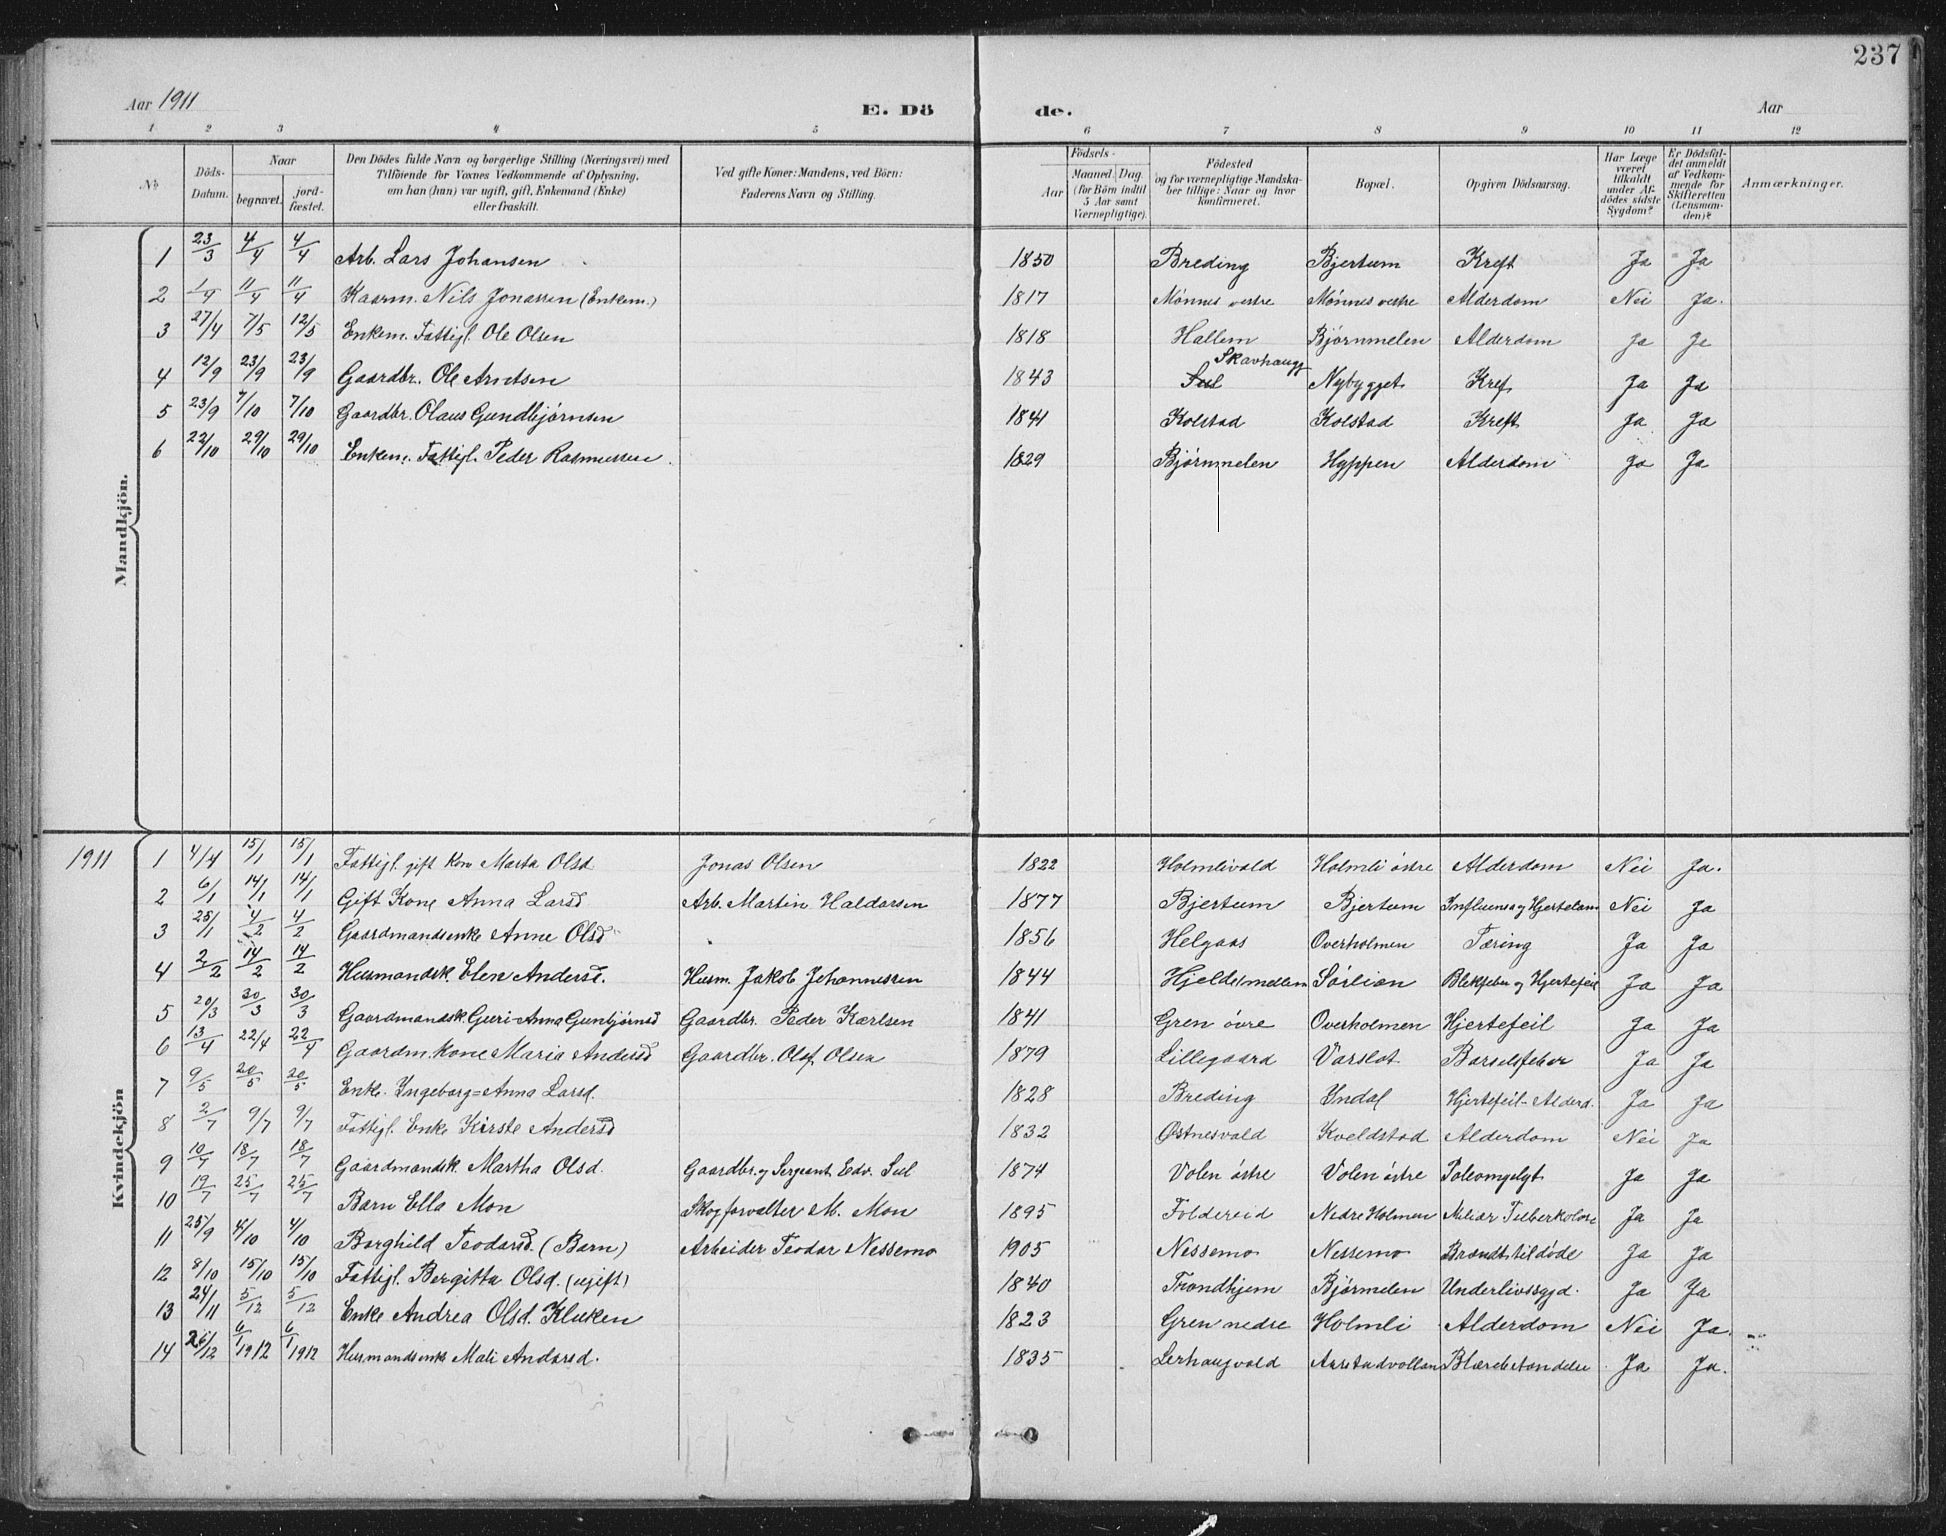 237
Aar 1911 E. Dö de. Aar
1 2 3 4 5 6 7 8 9 10 11 12
No Döds-Datum. Naar begravet. jordfæstet. Den Dödes fulde Navn og borgerlige Stilling (Næringsvei) med Tilföiende for Voxnes Vedkommende af Oplysning, om han (hun) var ugift, gift, Enkemand (Enke) eller fraskilt. Ved gifte Koner: Mandens, ved Börn: Faderens Navn og Stilling. Födsels- Aar Maaned. Dag. (for Börn indtil 5 Aar samt Værnepligtige). Födested og for værnepligtige Mandskaber tillige: Naar og hvor konfirmeret. Bopæl. Opgiven Dödsaarsag. Har Læge været tilkaldt under Afdödes sidste Sygdom? Er Dödsfaldet anmeldt af Vedkommende for Skifteretten (Lensmanden)? Anmærkninger.
Mandkjön.
1 23/3 4/4 4/4 Arb. Lars Johansen 1850 Breding Bjertum Kreft Ja Ja
2 1/4 11/4 11/4 Kaarm. Nils Jonassen (Enkem.) 1817 Mønnes vestre Mønnes vestre Alderdom Nei Ja.
3 27/4 7/5 12/5 Enkem. Fattigl. Ole Olsen 1818 Hallem Bjørnmelen Alderdom Ja Ja
4 12/9 23/9 23/9 Gaardbr. Ole Arntsen 1843 Sul Skavhaugg Nybygget Kref Ja Ja
5 23/9 7/10 7/10 Gaardbr. Olaus Gundbjørnsen 1841 Kolstad Kolstad Kreft Ja Ja
6 22/10 29/10 29/10 Enkem. Fattigl. Peder Rasmussen 1829 Bjørnmelen Hyppen Alderdom Ja Ja
1911
Kvindekjön
1 4/4 15/1 15/1 Fattigl. gift Kone Marta Olsd Jonas Olsen 1822 Holmlivald Holmli østre Alderdom Nei Ja.
2 6/1 14/1 14/1 Gift Kone Anna Larsd Arb. Martin Haldorsen 1877 Bjertum Bjertum Influensa og Hjertelam Nei Ja
3 25/1 4/2 4/2 Gaardmandsenke Anne Olsd 1856 Helgaas Overholmen Tæring Ja Ja
4 2/2 14/2 14/2 Husmandsk. Elen Andersd. Husm. Jakob Johannessen 1844 Hjelde mellem Sørlien Blekfeber og Hjertefeil Ja Ja
5 20/3 30/3 30/3 Gaardmandsk. Guri-Anna Gunbjørnsd Gaardbr. Peder Karlsen 1841 Gren øvre Overholmen Hjertefeil Ja Ja
6 13/4 22/4 22/4 Gaardm. kone Maria Andersd Gaardbr. Olof Olsen 1879 Lillegaard Varslot Barselsfeber Ja Ja
7 9/5 20/5 20/5 Enke. Ingeborg=Anna Larsd. 1828 Breding Yndal Hjertefeil-Alderd. Ja Ja
8 2/7 9/7 9/7 Fattigl. Enke Kirste Andersd 1832 Østnesvald Kveldstad Alderdom Nei Ja
9 10/7 18/7 18/7 Gaardmandsk. Martha Olsd. Gaardbr. og Sergeant Edv. Sul 1874 Volen østre Volen østre Ja Ja
10 19/7 25/7 25/7 Barn Ella Mon Skogforvalter M. Mon 1895 Foldereid Nedre Holmen Miliær Tuberkolose Ja Ja
11 25/9 4/10 4/10 Borghild Teodorsd. (Barn) Arbeider Teodor Nessemo 1905 Nessemo Nessemo Brændt tildøde Ja Ja
12 8/10 15/10 15/10 Fattigl. Bergitta Olsd. (ugift) 1840 Trondhjem Bjørmelen Underlivssygd. Ja Ja
13 24/11 5/12 5/12 Enke Andrea Olsd. Kluken 1823 Gren nedre Holmli Alderdom Nei Ja.
14 26/12 6/1 1912 6/1 1912 Husmandsenke Mali Andersd. 1835 Lerhaugvald Aarstadvollan Blærebetændelse Ja Ja.